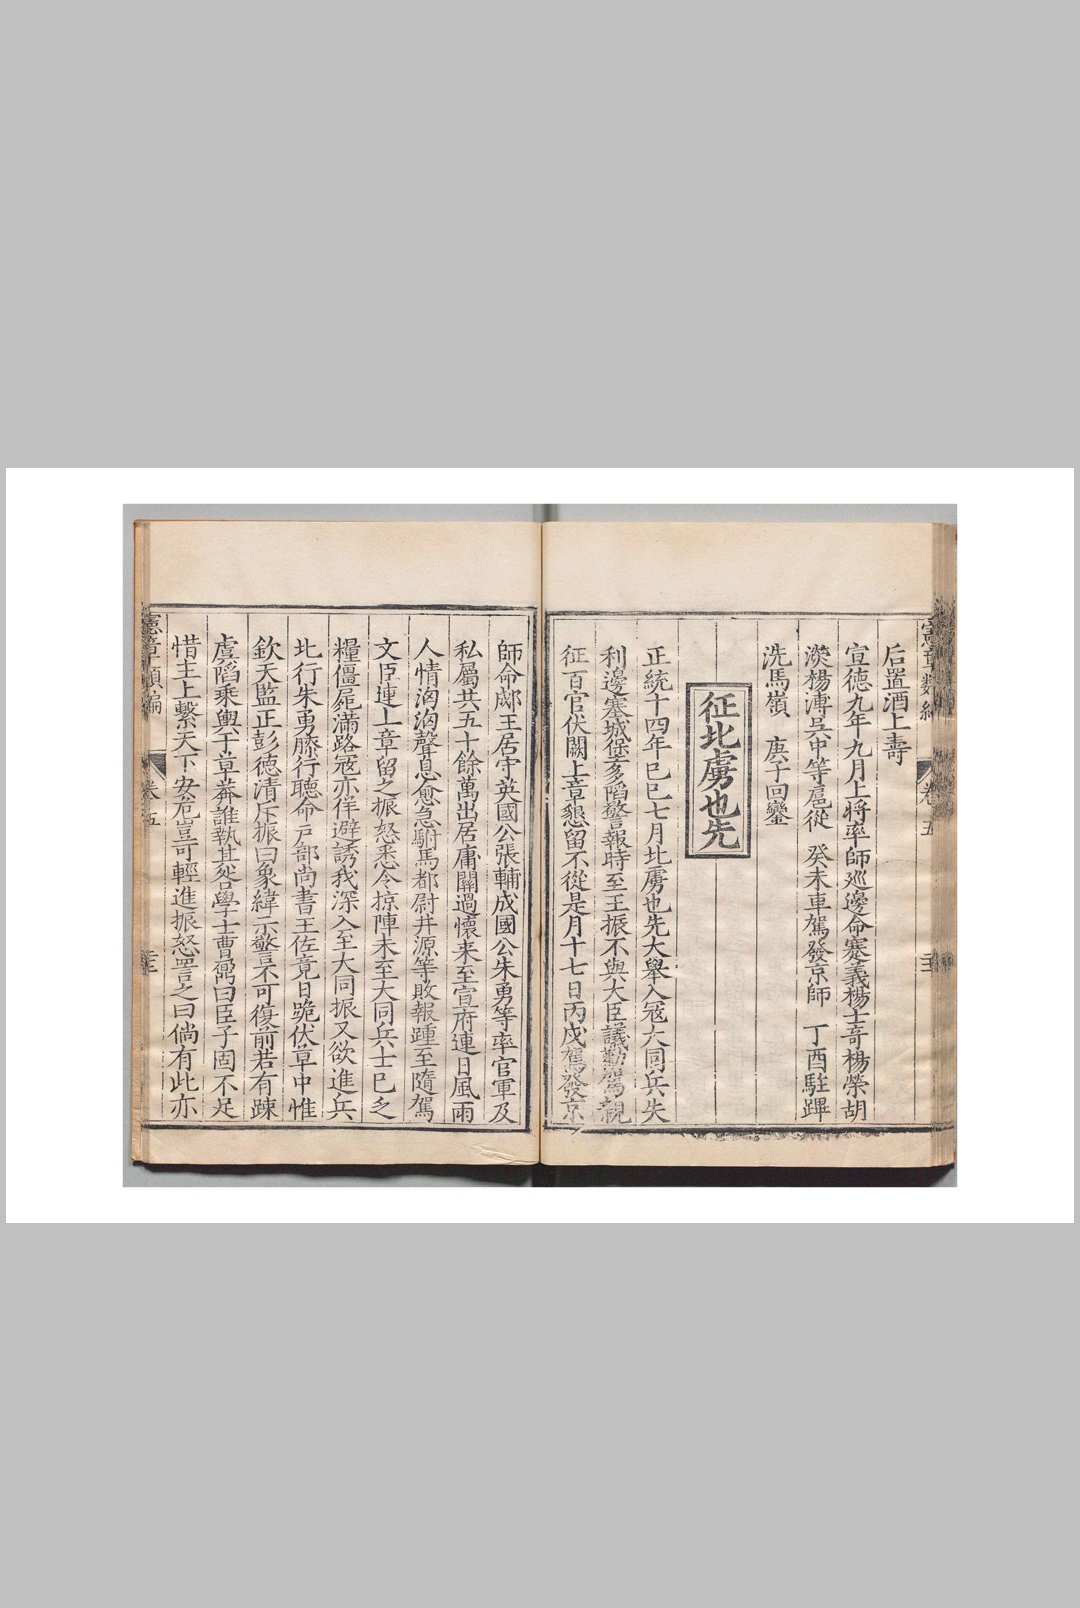 后置酒上壽
宣德九年九月上將率師巡邊命蹇義楊士竒楊榮胡
濙楊溥吳中等扈從　癸未車駕發京師　丁酉駐蹕
洗馬嶺　庚子回鑾
征北虜也先
正統十四年己巳七月北虜也先大舉入寇大同兵失
利邊塞城堡多陷警報時至王振不與大臣議勸駕親
征百官伏闕上章懇留不從是月十七日丙戌駕發京
師命郕王居守英國公張輔成國公朱勇等率官軍及
私屬共五十餘萬出居庸關過懷来至宣府連日風雨
人情洶洶聲息愈急駙馬都尉井源等敗報踵至隨駕
文臣連上章留之振怒悉令掠陣未至大同兵士已乏
糧僵屍滿路寇亦佯避誘我深入至大同振又欲進兵
北行朱勇膝行聽命戶部尚書王佐竟日跪伏草中惟
欽天監正彭德清斥振曰象緯示警不可復前若有踈
虞陷乘輿于草莽誰執其咎學士曹鼐曰臣子固不足
惜主上繫天下安危豈可輕進振怒詈之曰倘有此亦
憲章類編
卷五